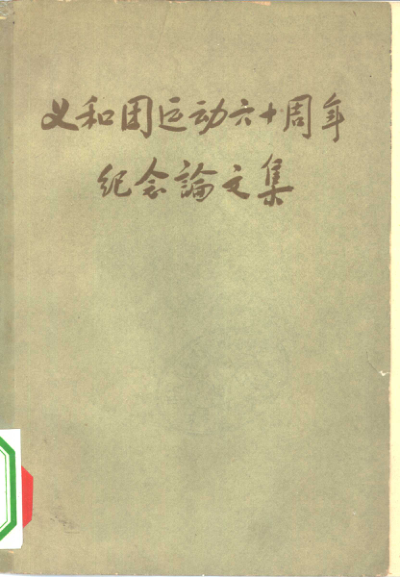 义和团运动六十周年
纪念論文集